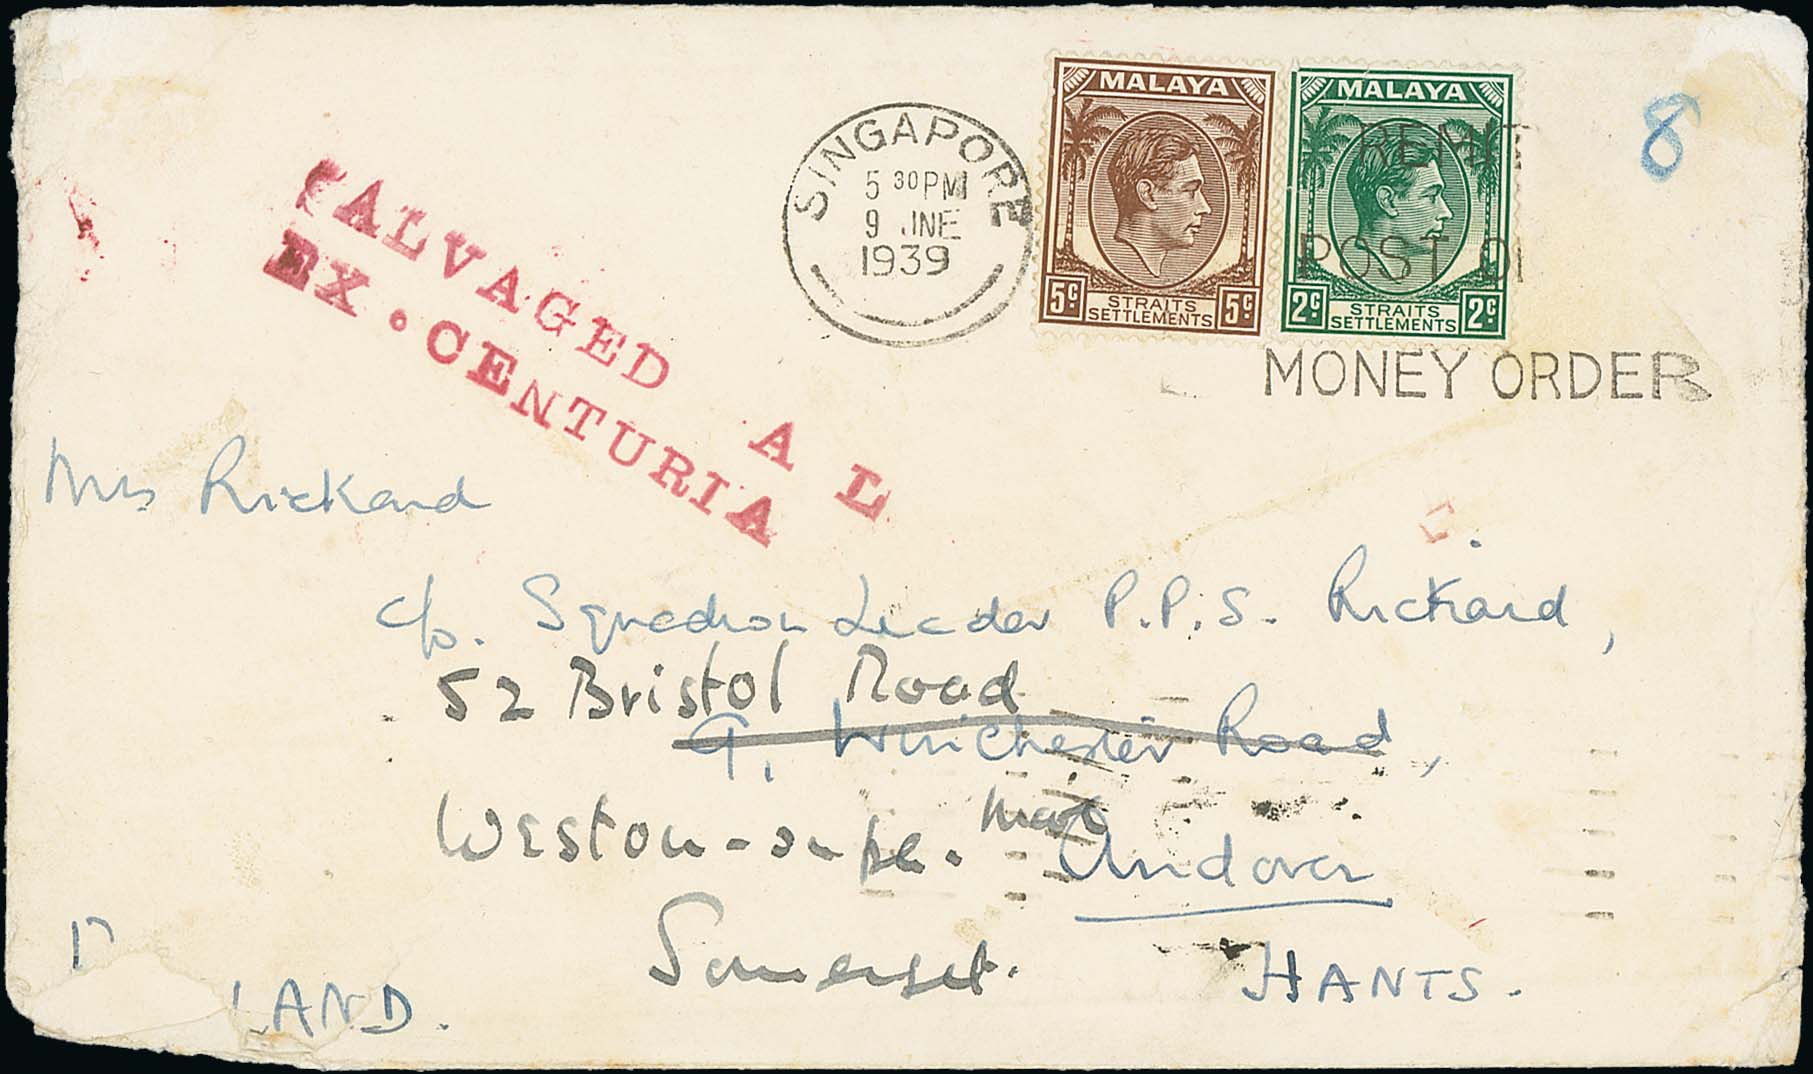 SINGAPORE
5 30PM
9 JNE
1939
MALAYA
5c 5c
STRAITS
SETTLEMENTS
MALAYA
2c 2c
STRAITS
SETTLEMENTS
REMIT
POST
MONEY ORDER
8
SALVAGED A L
EX. CENTURIA
Mrs Rickard
c/o. Squadron Leader P.P.S. Rickard,
52 Bristol Road
9, Winchester Road,
Weston-super-Mare
Andover
Somerset.
HANTS.
LAND.